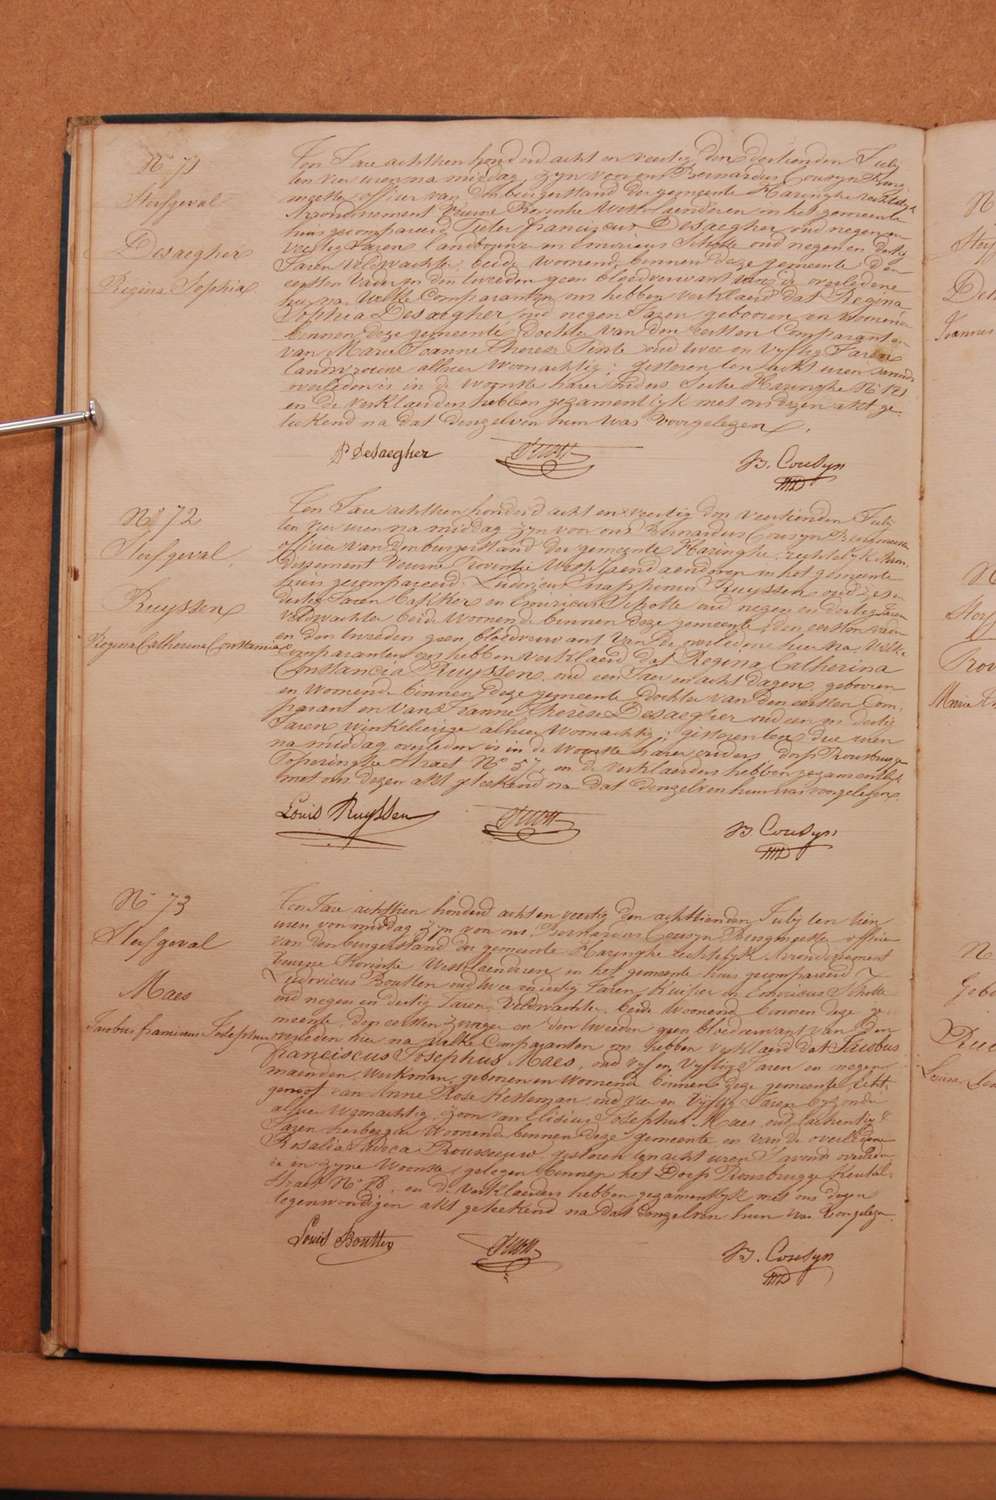 N° 71
Sterfgeval
Desaegher
Regina Sophia
Ten Jare achthien honderd acht en veertig den derthienden July
ten vier uren na middag, zyn voor ons Bernardus Cousyn Burg
mestre officier van den burgerstand der gemeente Haringhe rechtelyk
Arrondissement Veurne Provincie Westvlaenderen in het gemeente
huis gecompareerd Pieter franciscus Desaegher oud negen en
veertig Jaren landbouwer en Emericus Scholle oud negen en dertig
Jaren veldwachter beide wonende binnen deze gemeente, den
eersten vader en den tweeden geen bloedverwant van de overledene
hier na. Welke Comparanten ons hebben verklaerd dat Regina
Sophia Desaegher oud negen Jaren geboren en wonende
binnen deze gemeente dochter van den eersten Comparant en
van Marie Joanne Therese oud twee en vyftig Jaren
landbouwerse alhier woonachtig; gisteren ten acht uren savonds
overleden is in de Woonste harer ouders Haringhe N° 121
en de verklaerders hebben gezamentlyk met ons dezen akt ge
teekend na dat denzelven hun was voorgelezen.
P Desaegher
B. Cousyn
N° 72
Sterfgeval
Ruyssen
Regina Catherine Constancia
Ten Jare achthien honderd acht en veertig den veertienden July
ten vier uren na middag zyn voor ons Bernardus Cousyn Burgmestre
officier van den burgerstand der gemeente Haringhe, rechtelyk Arron-
dissement Veurne Provincie Westvlaenderen in het gemeente
huis gecompareerd Ludovicus Ruyssen oud zes en
dertig Jaren Bakker en Emericus Scholle oud negen en dertig Jaren
veldwachter beide wonende binnen deze gemeente, den eersten vader
en den tweeden geen bloedverwant van de overledene hier na. Welke
Comparanten ons hebben verklaerd dat Regina Catherina
Constancia Ruyssen oud een Jaer en acht dagen, geboren
en wonende binnen deze gemeente dochter van den eersten Com-
parant en van Joanne Therese Desaegher oud een en dertig
Jaren winkelierige alhier woonachtig; gisteren ten drie uren
na middag overleden is in de Woonste harer ouders dorp Rousbrugge
Poperinghe straet N° 57, en de verklaerders hebben gezamentlyk
met ons dezen akt geteekend na dat denzelven hun was voorgelezen.
Louis Ruyssen
B Cousyn
N° 73
Sterfgeval
Maes
Jacobus franciscus Josephus
Ten Jare achthien honderd acht en veertig den achttienden July ten tien
uren voor middag zyn voor ons Bernardus Cousyn Burgmestre officier
van den burgerstand der gemeente Haringhe rechtelyk Arrondissement
Veurne Provincie Westvlaenderen in het gemeente huis gecompareerd
Ludovicus Boutten oud twee en dertig Jaren, Kuiper en Emericus Scholle
oud negen en dertig Jaren Veldwachter, beide wonende binnen deze ge-
meente, den eersten zwager en den tweeden geen bloedverwant van den
overleden hier na Welke Comparanten ons hebben verklaerd dat Jacobus
franciscus Josephus Maes, oud vyf en vyftig Jaren en negen
maenden, Werkman, geboren en wonende binnen deze gemeente, echt
genoot van Anne Rose Kesteman, oud vier en vyftig Jaren byzonder
alhier woonachtig, zoon van Elisius Josephus Maes oud tachentig
Jaren herbergier wonende binnen deze gemeente en van de overledene
Rosalia Judoca Rousseeuw, gisteren ten acht uren Savonds overleden
is en zyne Woonste gelegen binnen het Dorp Rousbrugge
Straet N° 18. en de verklaerders hebben gezamentlyk met ons dezen
tegenwoordigen akt geteekend na dat denzelven hun was voorgelezen.
Louis Boutten
B. Cousyn